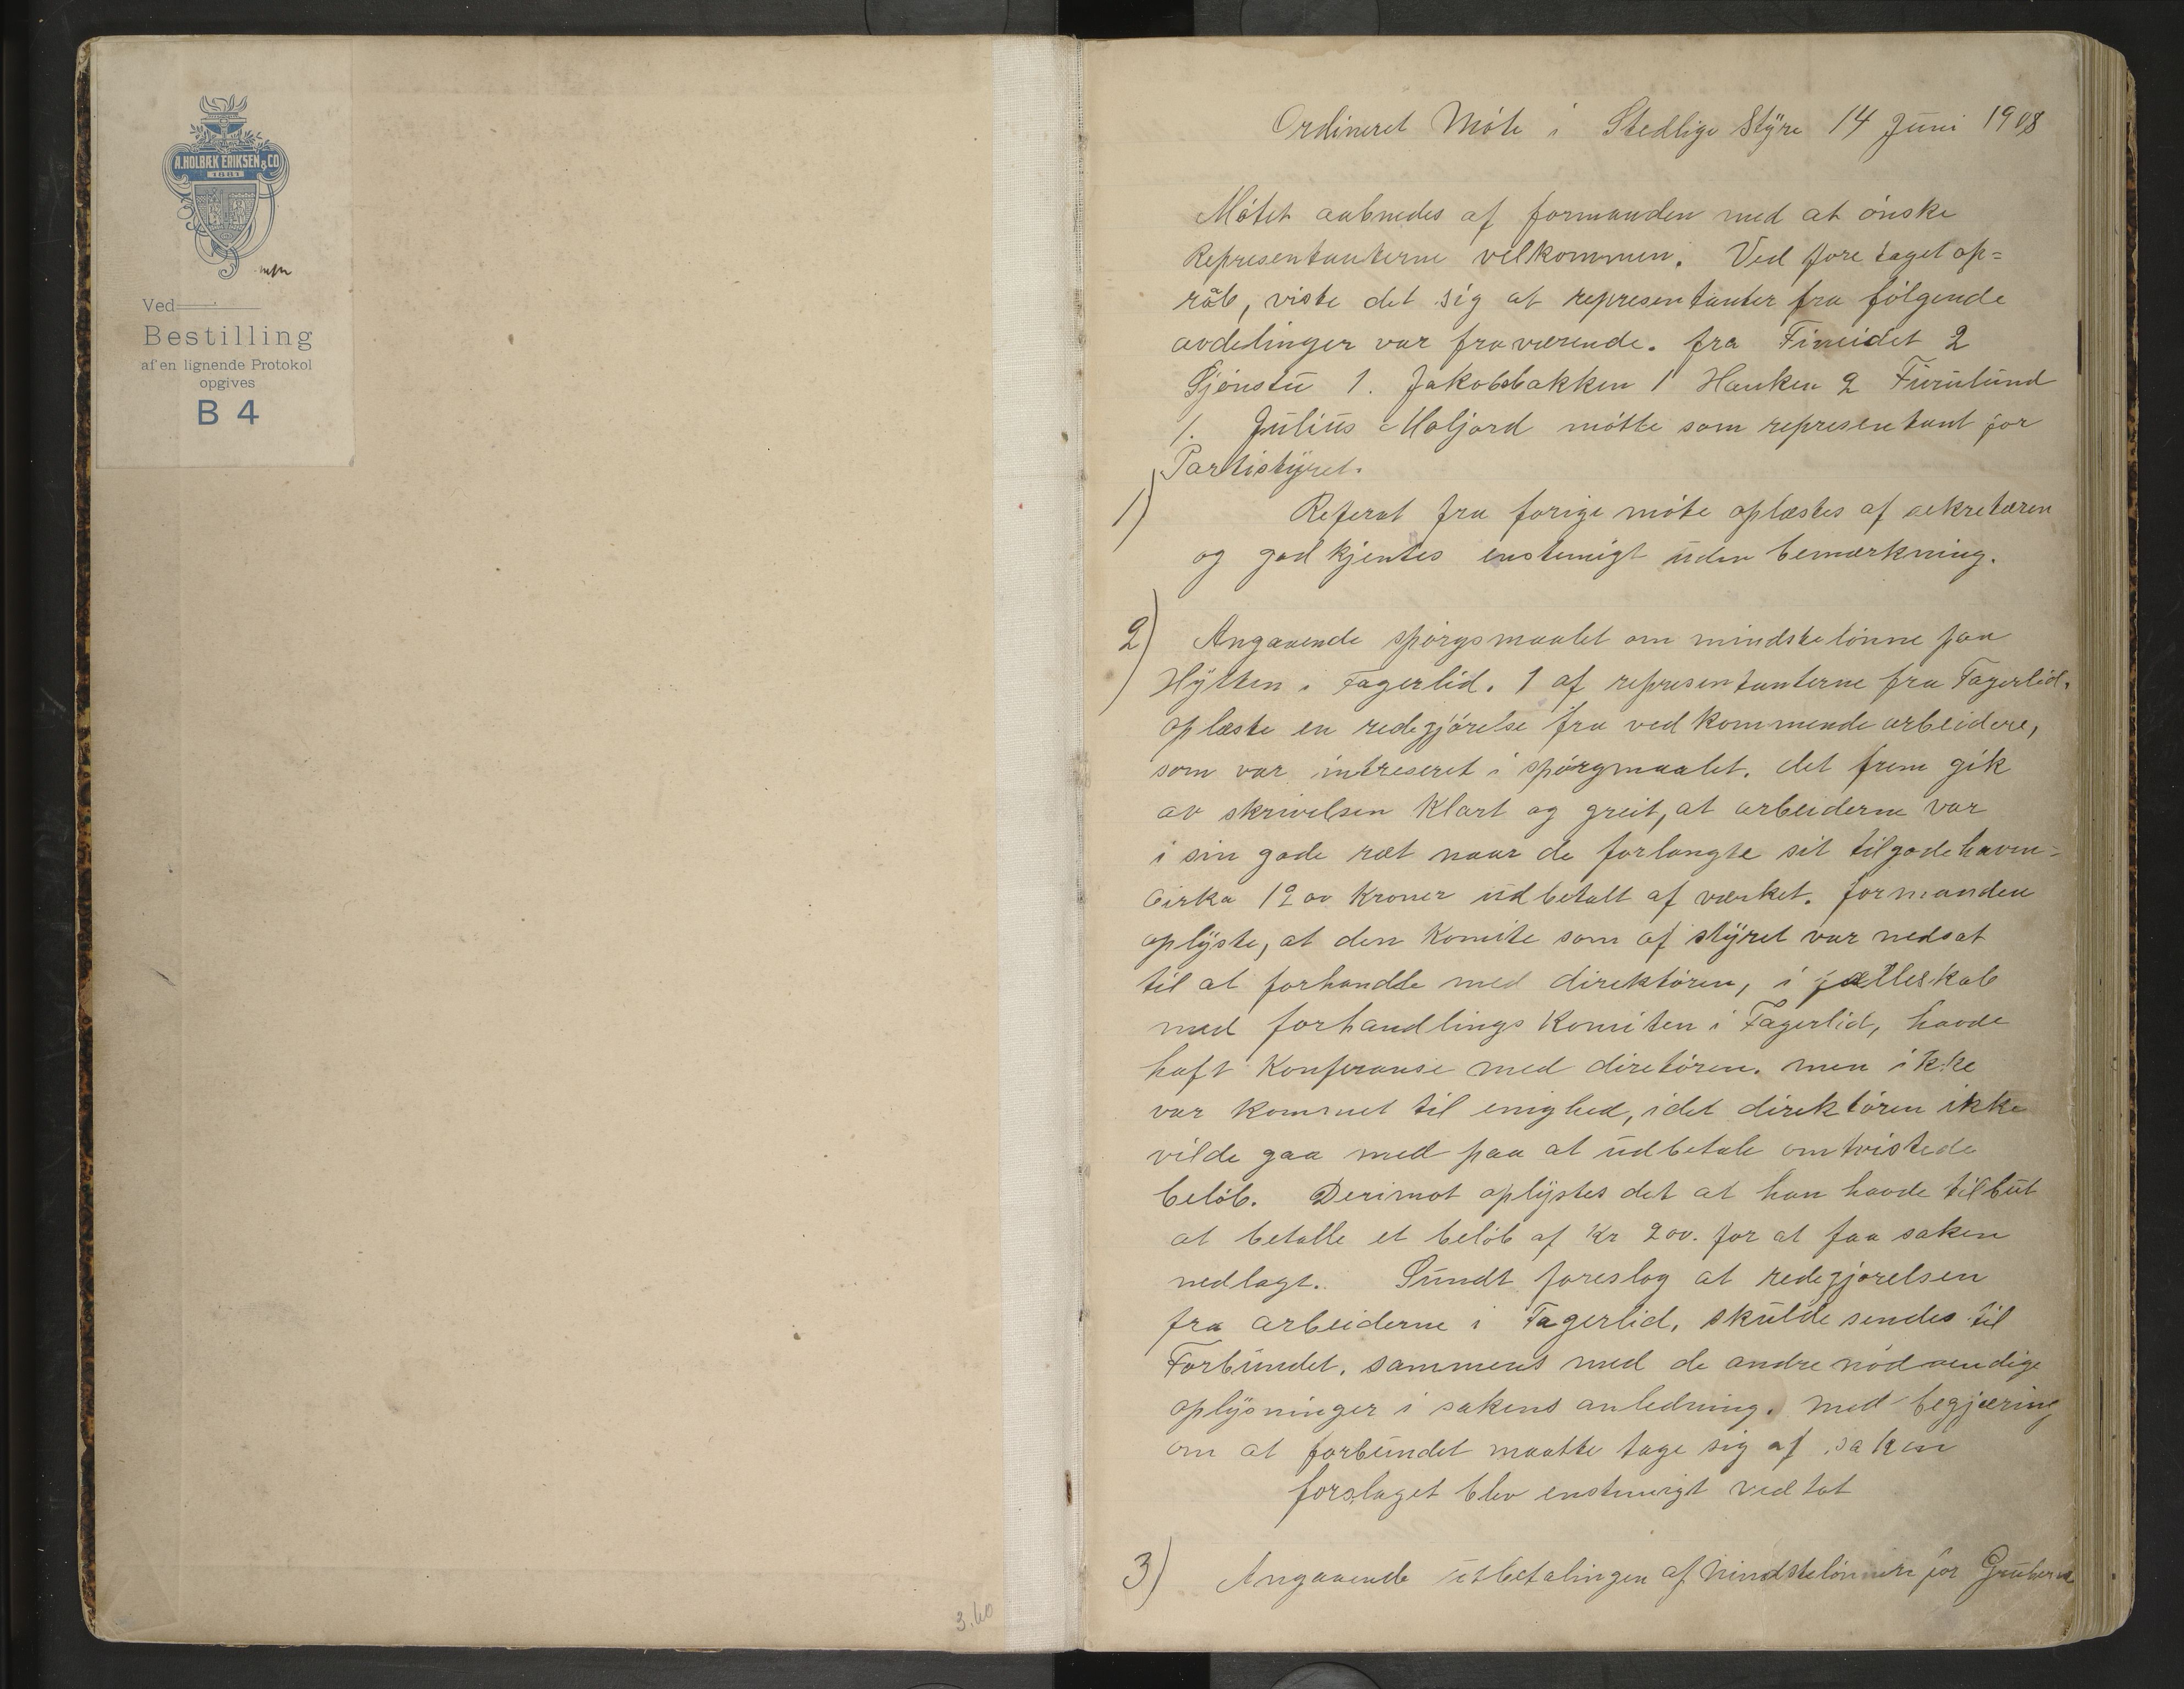 A. HOLBÆK ERIKSEN & CO
1881
Ved
Bestilling
af en lignende Protokol
opgives
B 4
3.60
Ordineret Möte i Stedlige Styre 14 Juni 1908
Mötet aabnedes af formanden med at önske
Representanterne velkommen. Ved fore taget op=
råb, viste det sig at representanter fra fölgende
avdelinger var fraværende. fra Fineidet 2
Sjönstu 1. Jakobsbakken 1 Hanken 2 Furulund
1. Julius Moljord mötte som representant for
Partistyret.
1) Referat fra forige möte oplæstes af sekretæren
og godkjentes enstemigt uden bemærkning.
2) Angaaende spörgsmaalet om mindstelönne paa
Hytten i Fagerlid. 1 af representanterne fra Fagerlid.
oplæste en redegjörelse fra ved kommende arbeidere,
som var intreseret i spörgmaalet. det frem gik
av skrivelsen klart og greit, at arbeiderne var
i sin gode ræt naar de forlangte sit tilgodehaven=
Cirka 1200 Kroner udbetalt af værket. formanden
oplyste, at den Komite som af styret var nedsat
til at forhandle med direktören, i fælleskab
med forhandlings Komiten i Fagerlid, havde
haft Konferanse med diretören. men ikke
var kommet til enighed, idet direktören ikke
vilde gaa med paa at udbetale omtvistede
belöb. Derimot oplystes det at han havde tilbut
at betalle et belöb af Kr 200. for at faa saken
nedlagt. Sundt foreslog at redegjorelsen
fra arbeiderne i Fagerlid, skulde sendes til
Forbundet, sammens med de andre nödvendige
oplysninger i sakens anledning. med begjæring
om at forbundet maatte tage sig af saken
forslaget blev enstemigt vedtat
3) Angaaende utbetalingen af Mindstelönnen for Gruberne